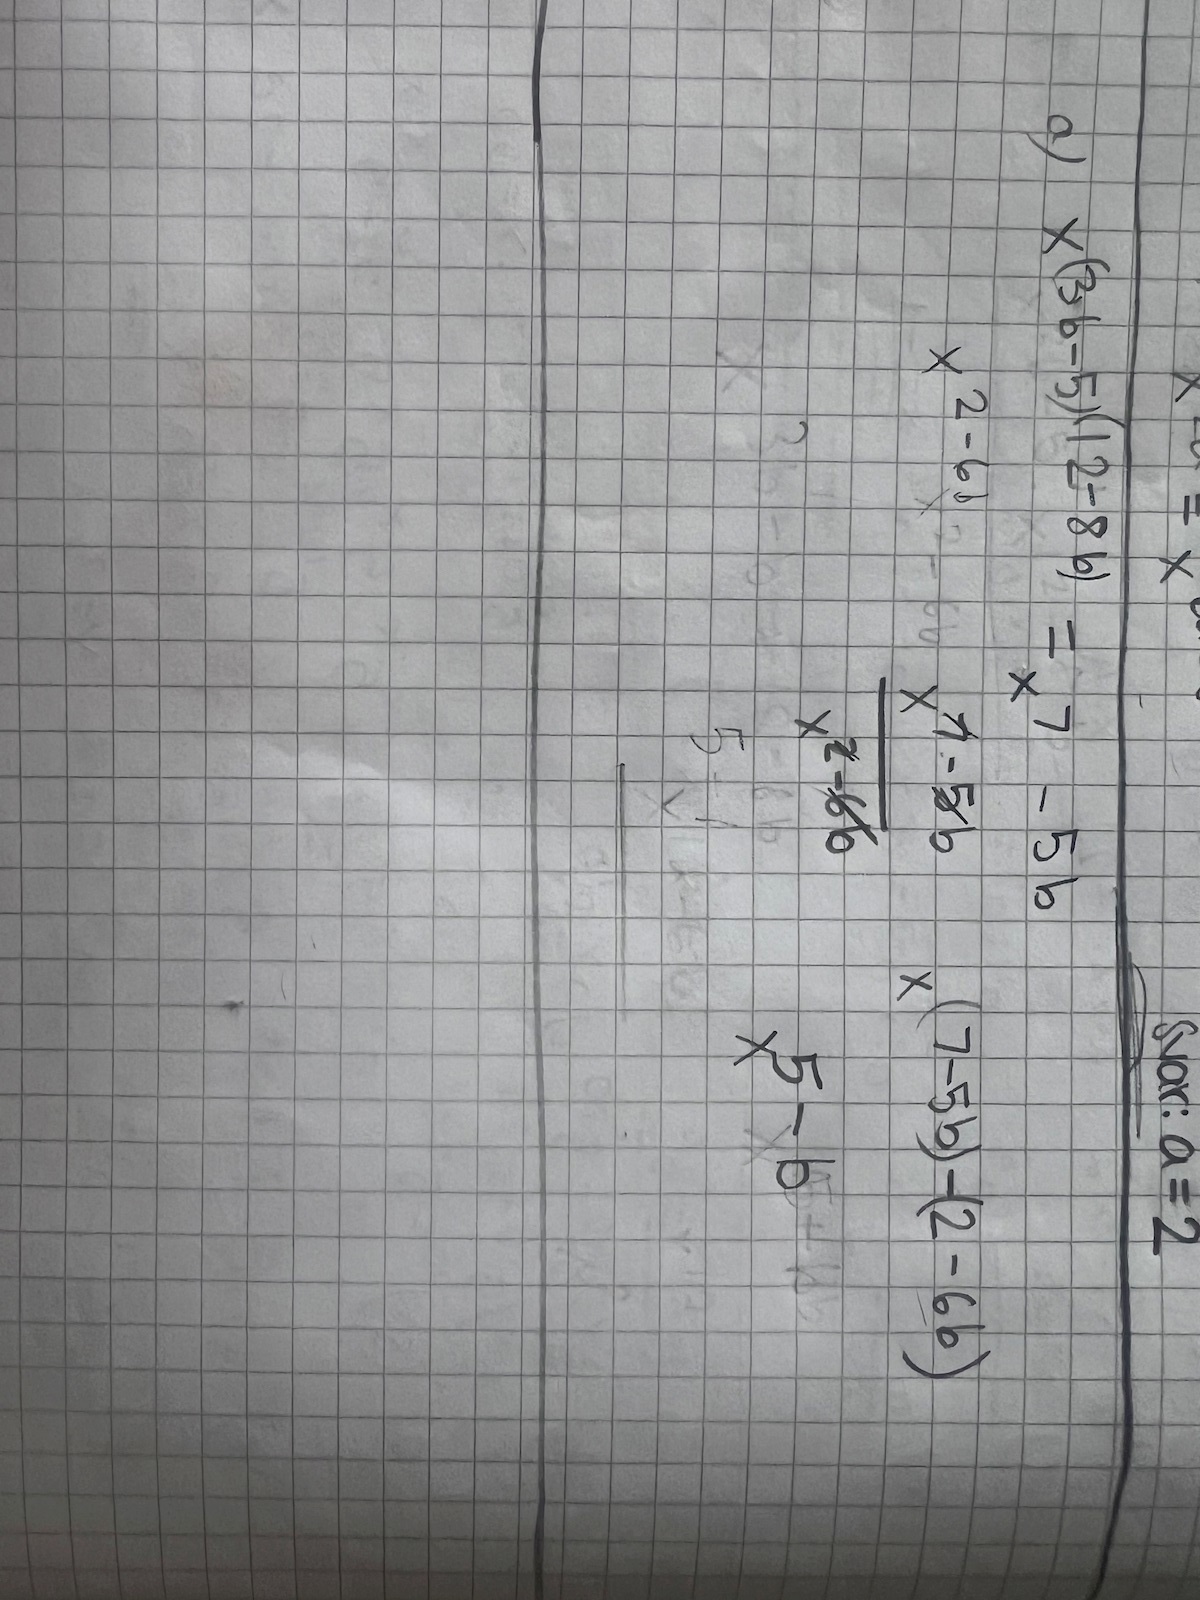 Svar: a = 2
a) x(3b-5)(12-8b) = x 7 - 5b
x 2-6b x 7-5b x (7-5b)-(2-6b)
x 2-6b
x 5-b